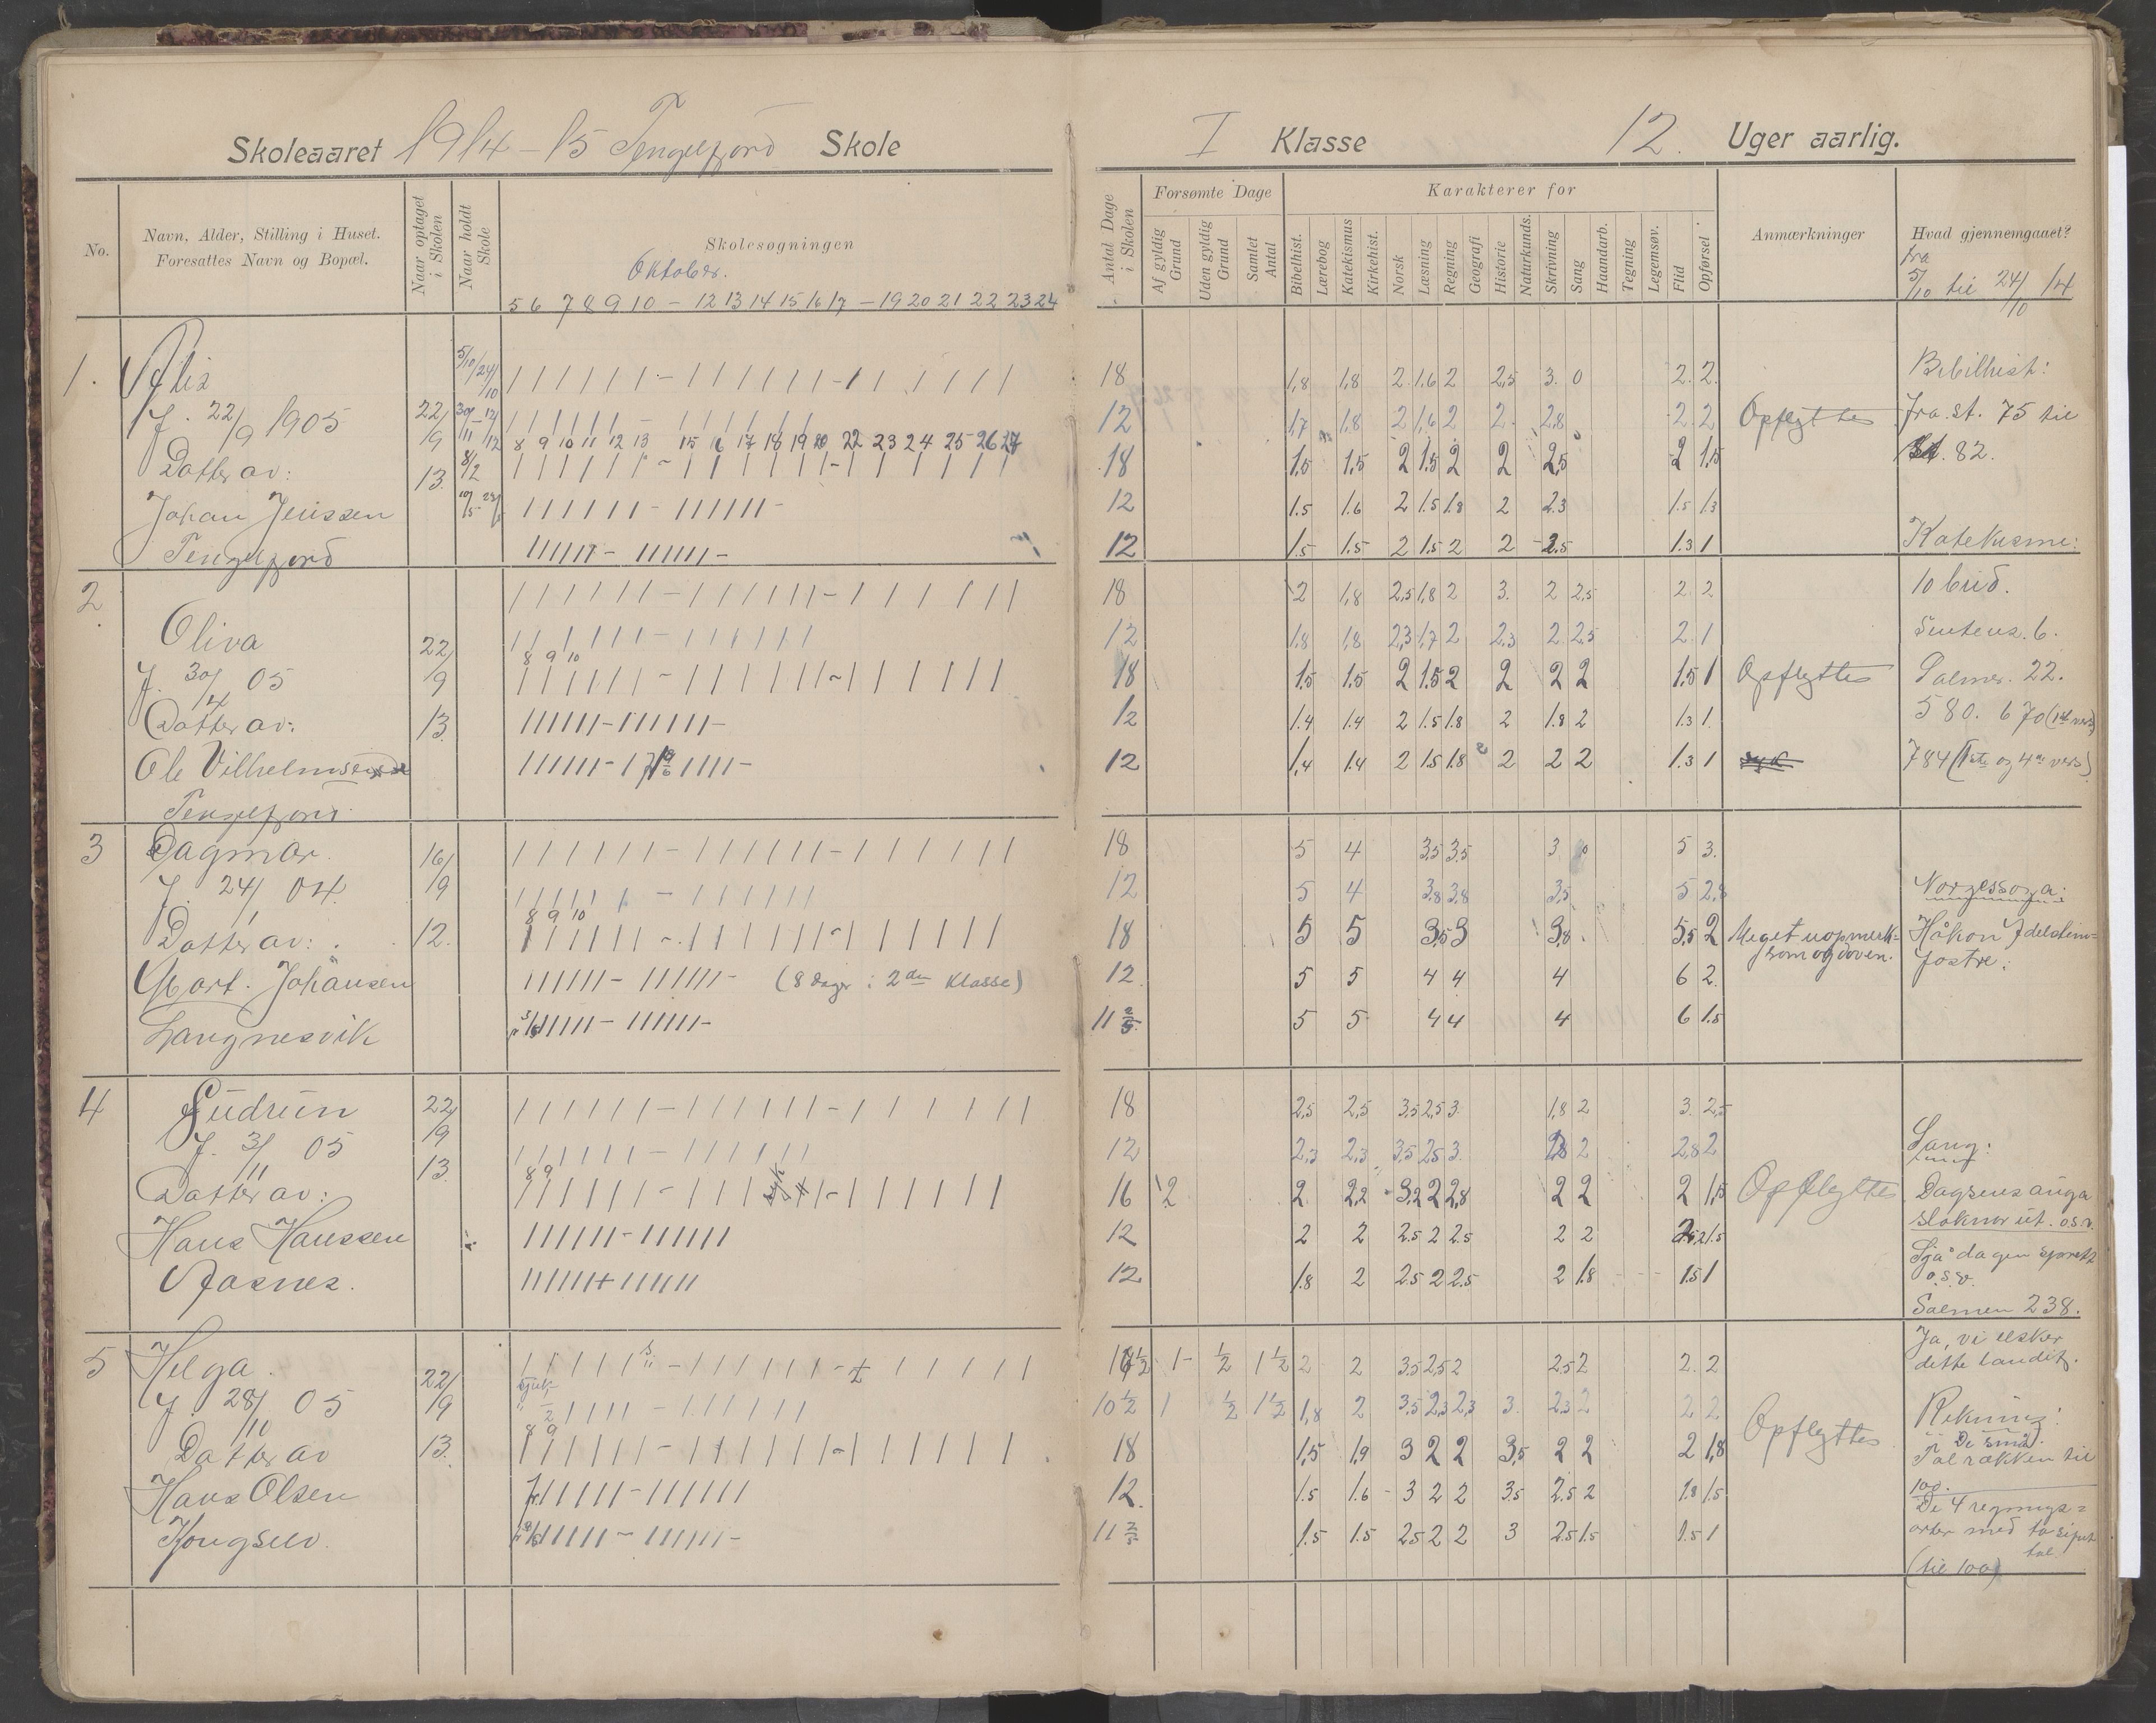 Skoleaaret 1914-15 Tengelfjord Skole
I Klasse 12. Uger aarlig.
No.
Navn, Alder, Stilling i Huset.
Foresattes Navn og Bopæl.
Naar optaget i Skolen
Naar holdt Skole
Skolesøgningen
Oktober.
5 6 7 8 9 10 - 12 13 14 15 16 17 - 19 20 21 22 23 24
Antal Dage i Skolen
Forsømte Dage
Af gyldig Grund
Uden gyldig Grund
Samlet Antal
Karakterer for
Bibelhist.
Lærebog
Katekismus
Kirkehist.
Norsk
Læsning
Regning
Geografi
Historie
Naturkunds.
Skrivning
Sang
Haandarb.
Tegning
Legemsøv.
Flid
Opførsel
Anmærkninger
Hvad gjennemgaaet?
fra
5/10 til 24/10 14
1.
f. 22/9 1905
Datter av:
Johan Jenssen
Tengelfjord
22/9
13.
8 9 10 11 12 13 15 16 17 18 19 20 22 23 24 25 26 27
18 1,8 1,8 2 1,6 2 2,5 3. 0 2. 2.
12 1,7 1,8 2 1,6 2 2 2,8 2 2
18 1,5 1,5 2 1.5 2 2 2,5 2 1,5
12 1.5 1.6 2 1.5 1.8 2 2.3 1.5 1.3
12 1.5 1.5 2 1.5 2 2 2.5 1.3 1
Opflyttes
2
Oliva
f. 30/4 05
Datter av:
Ole Vilhelmsen
Tengelfjord
22/9
13.
8 9 10
18 2 1,8 2,5 1,8 2 3. 2 2,5 2 2
12 1,8 1,8 2,3 1,7 2 2,3 2 2,5 2 1
18 1.5 1.5 2 1.5 2 2 2 2 1.5 1
12 1.4 1.4 2 1.5 1.8 2 1.8 2 1.3 1.
12 1,4 1.4 2 1.5 1.8 2 2 2 1.3 1
Opflyttes
3
Dagmar.
f. 24/1 04.
Datter av:
Mort. Johansen
Langnesvik
16/9
12.
8 9 10
(8 dager i 2den Klasse)
18 5 4 3,5 3.5 3 0 5 3.
12 5 4 3,8 3,8 3,5 5 2,8
18 5 5 3,5 3 3,8 5,5 2
12 5 5 4 4 4 6 2
11 5 5 4 4 4 6 1.5
Meget uopmerk=
som og doven.
4
Gudrun
f. 3/11 05
Datter av:
Hans Hanssen
22/9
13.
8 9
syk
18 2,5 2,5 3.5 2,5 3. 1,8 2 3. 2,5
12 2,3 2,3 3,5 2,5 3. 2,8 2 2,8 2
16 2 2 2,2 3,2 2 2,8 2 2 2 1,5
12 2 2 2.5 2 2.5 2 2 2.5
12 1.8 2 2.5 2 2.5 2 1.8 1.5 1
Opflyttes
5
Helga.
f. 28/10 05
Datter av
Hans Olsen
Kongselv.
22/9
13.
8 9
16 1/2 1 - 1/2 1 1/2 2 2 3.5 2,5 2 2.5 2 2. 2
10 1/2 1 1/2 1 1/2 1,8 2 3.5 2,3 2,3 3. 2,3 2 2 2
18 1,5 1,9 3 2 2 3,5 2 2 2 1,8
12. 1.5 1.6 - 3 2 2 3.5 2.5 2 1.8 1.5
11 1.5 1.5 2.5 2 2 3 2.5 1.5 1.5 1
Opflyttes
Bibilhist:
fra st. 75 til
st. 82.
Katekisme:
10 bud.
Sentens. 6.
Salmer. 22.
580. 670 (1st vers)
784 (1ste og 4de vers)
Norgessoga:
Håkon Adelsteins-
fostre:
Sang:
Dagsens auga
sloknar ut. o.s.v.
Sjå dagen sprett
o.s.v.
Salmen 238.
Ja, vi elsker
dette landet.
Rekning:
De små.
Talrækken til
100.
De 4 regnings=
arter med
tal
(til 100)